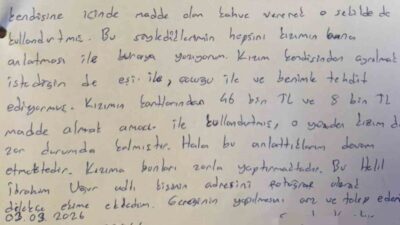 kendisine içinde madde olan kahve vererek o şekilde de
kullandırtmış. Bu söylediklerimin hepsini kızımın bana
anlatması ile buraya yazıyorum. Kızım kendisinden ayrılmak
istediğin de eşi ile, çocuğu ile ve benimle tehdit
ediyormuş. Kızımın kartlarından 46 bin TL ve 8 bin TL
madde almak amacı ile kullandırtmış, o yönden kızım da
zor durumda kalmıştır. Hala bu anlattıklarım devam
etmektedir. Kızıma bunları zorla yaptırmaktadır. Bu Halil
İbrahim Uğur adlı kişinin adresini olarak
dilekçe ekime ekledim. Gereğinin yapılmasını arz ve talep eder
09.03.2026